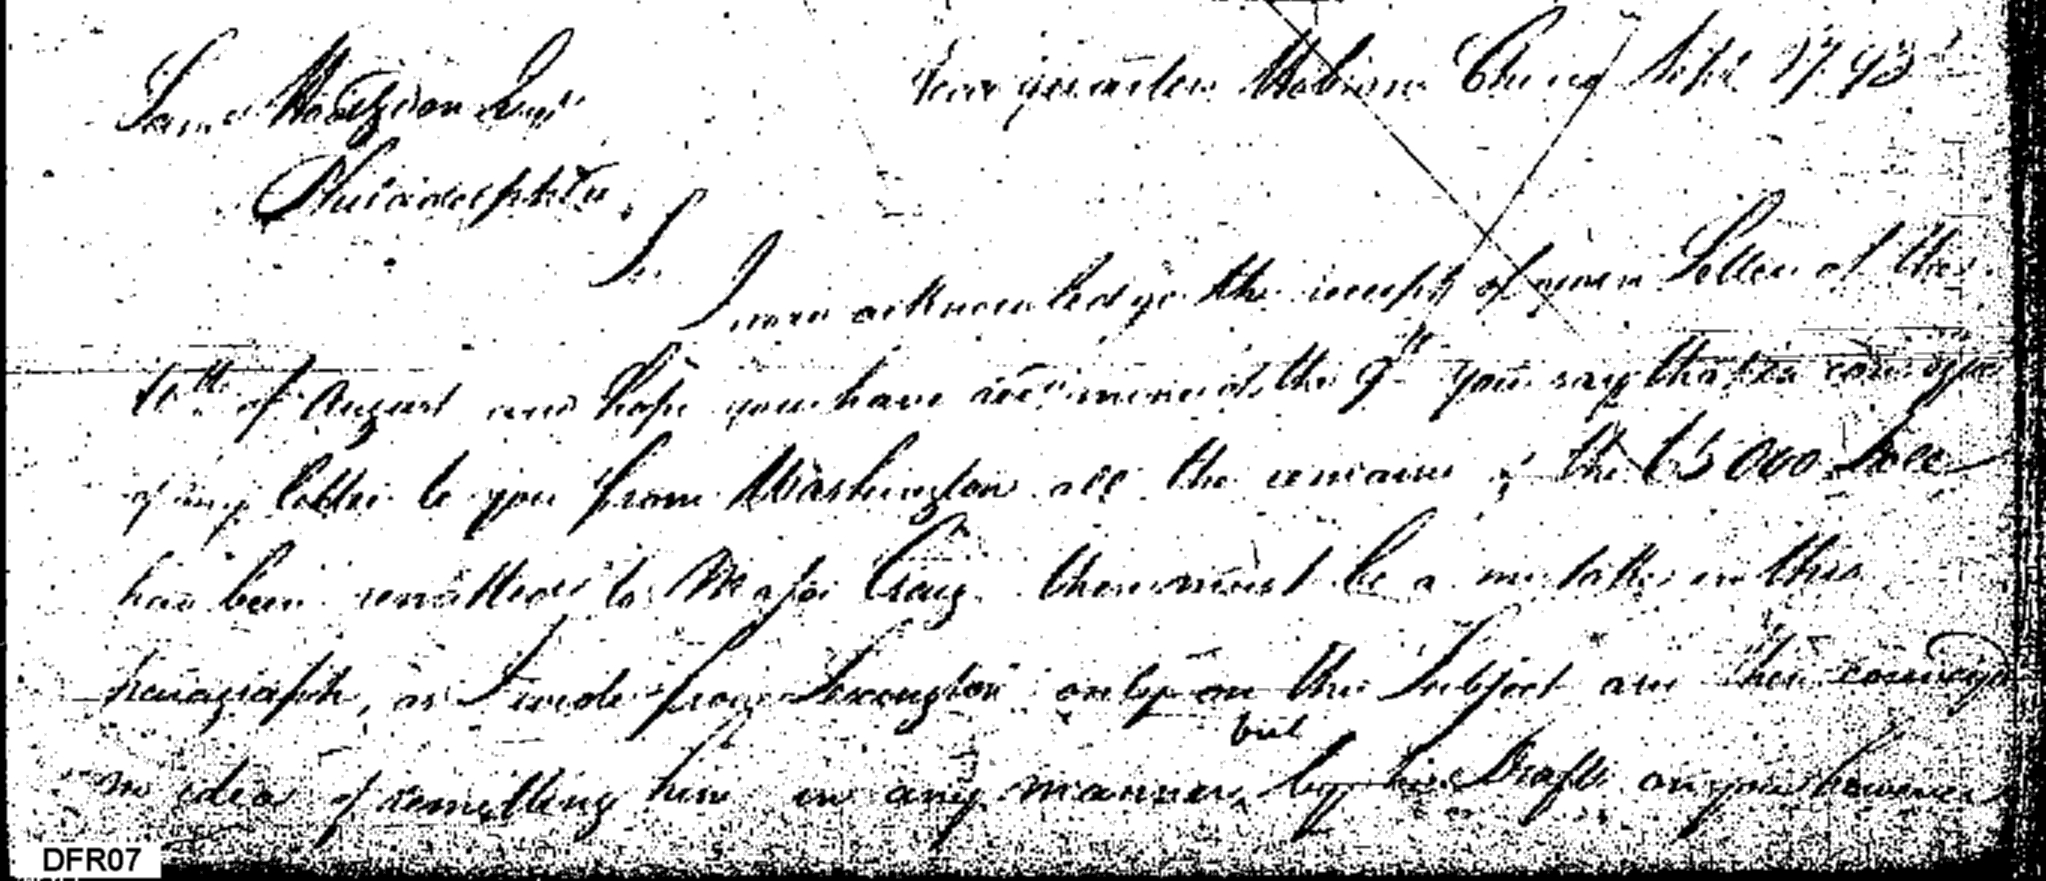 Saml Hodgdon Esqr
Head quarters Hobsons Choice Sept 17 93
Philadelphia
Sir
I now acknowledge the receipt of your Letter of the
10th of August and hope you have recd mine of the 9th You say that in consequ
of my letter to you from Washington all the remains of the 65000 Doll
has been remitted to Major Craig there must be a mistake in this
paragraph, as I wrote from Lexington only on this Subject and then conveyd
no idea of remitting him in any manner but by his Drafts on you however
DFR07